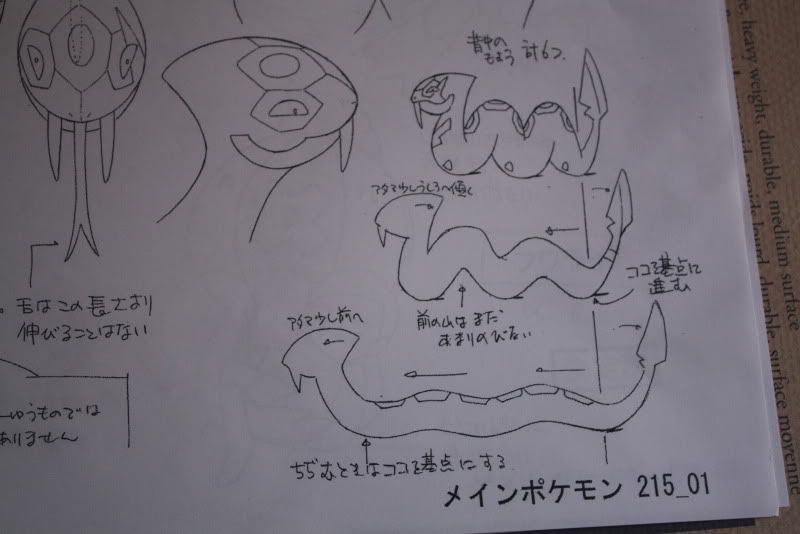 背中の
もよう 計6つ
アタマ少しうしろへ傾く
ココを基点に
進む
。舌はこの長さより
伸びることはない
前の山はまだ
あまりのびない
アタマ少し前へ
ーゆうものでは
ありません
ちぢむときはココを基点にする
メインポケモン 215_01
re, heavy weight, durable, medium surface
lourd, durable, surface moyenne